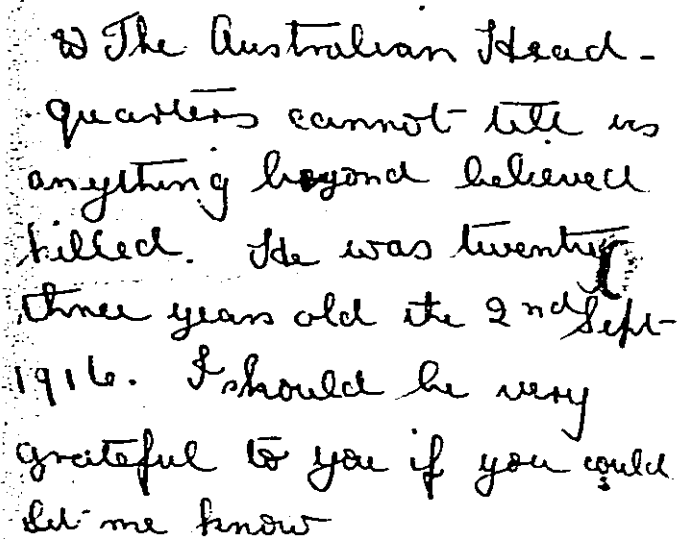 The Australian Head-
quarters cannot tell us
anything beyond believed
killed. He was twenty
three years old the 2nd Sept
1916. I should be very
grateful to you if you could
let me know